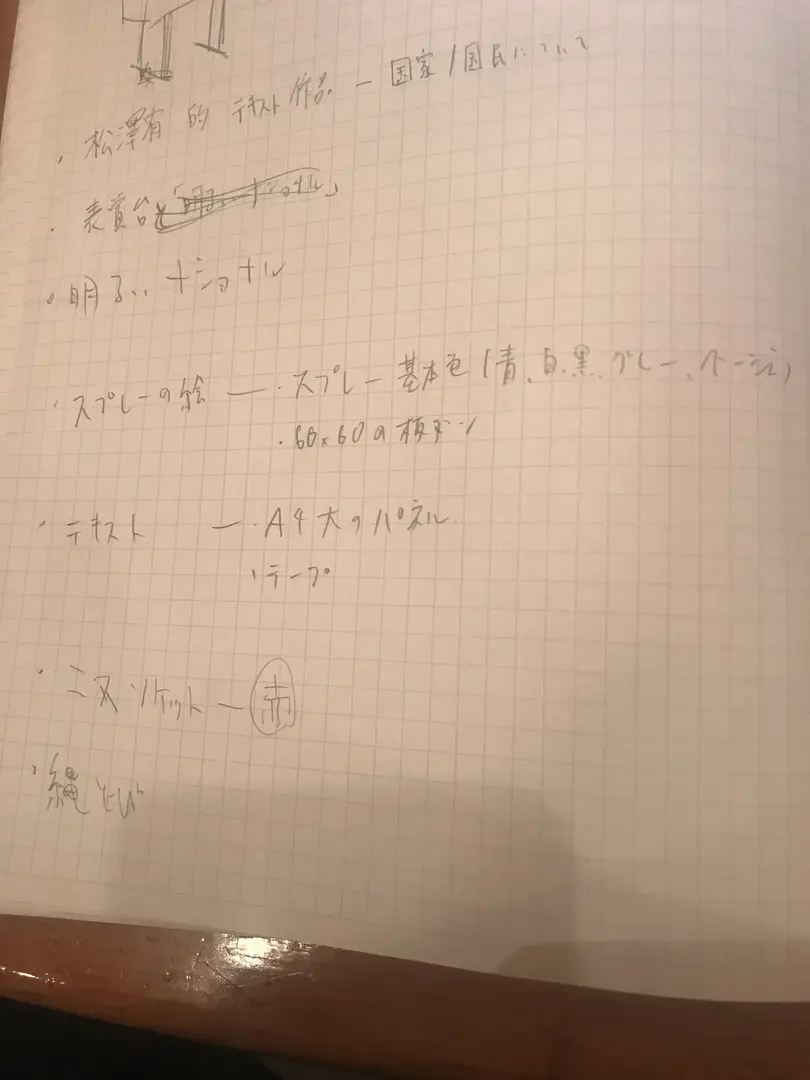 ・松澤宥的テキスト作品 ー 国家/国民について
・表彰台
・明るいナショナル
・スプレーの絵 ー ・スプレー基本色(青、白、黒、グレー、ベージュ)
・60×60の板ダン
・テキスト ー ・A4大のパネル
・テープ
・ニス ー 赤
・縄とび